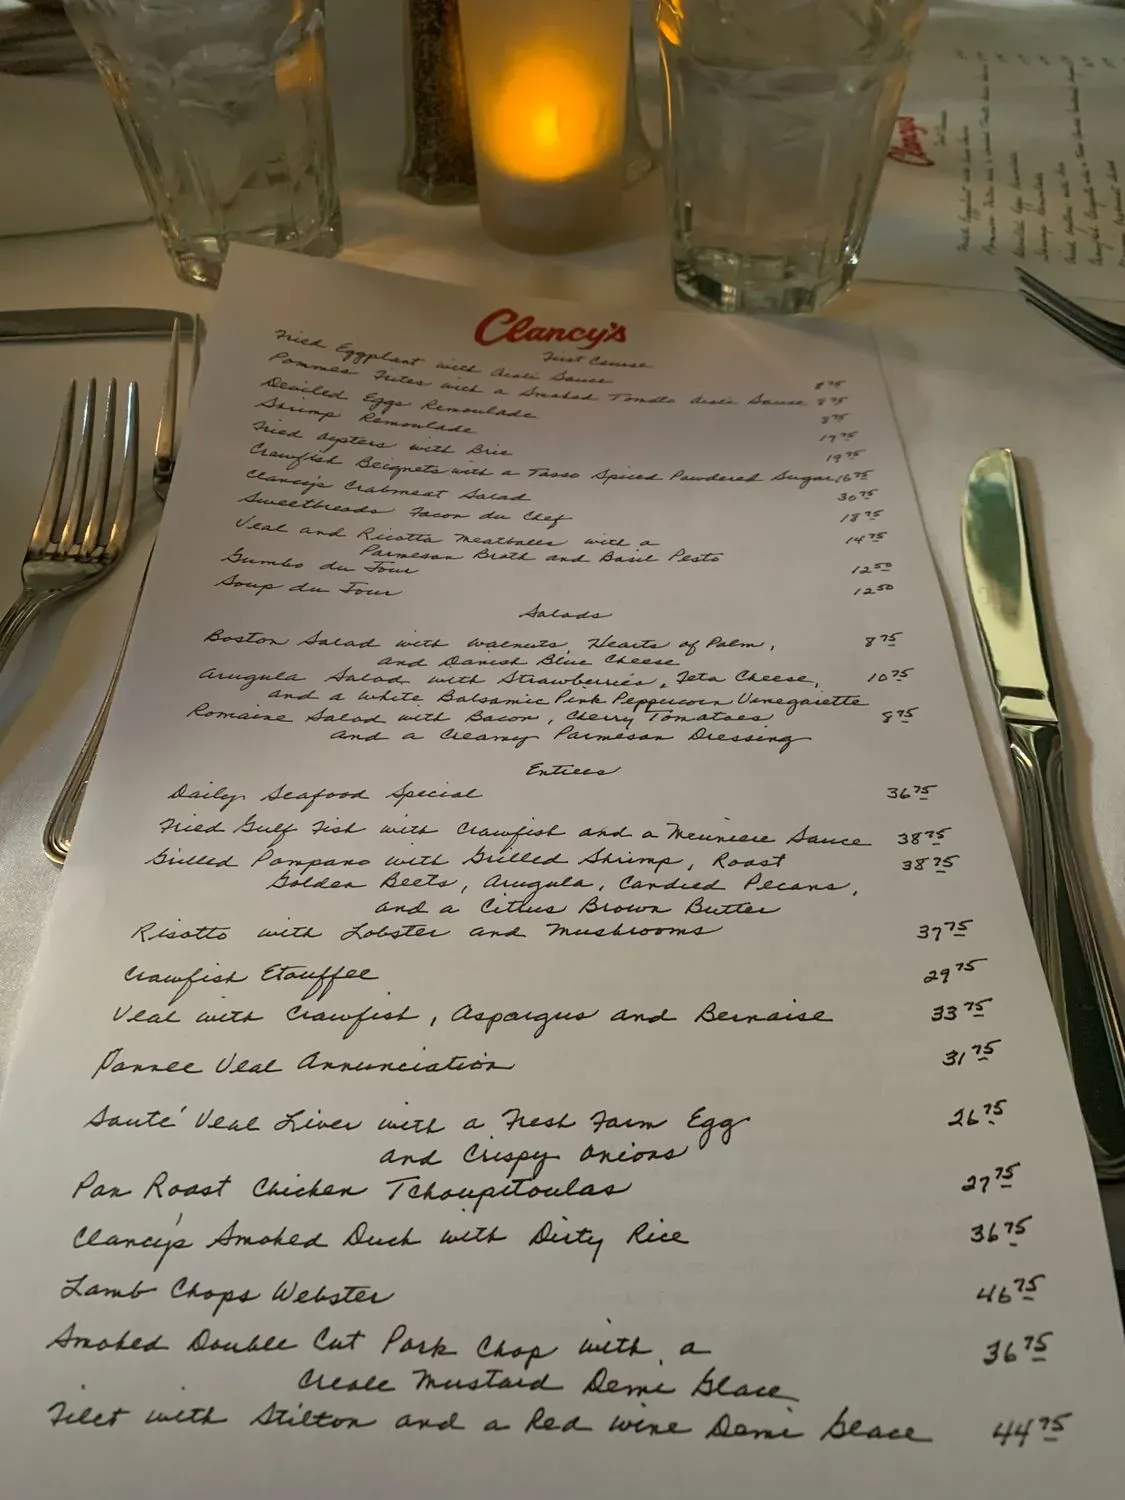 Clancy's
First Course
Fried Eggplant with Aioli Sauce 8 75
Pommes Frites with a Smoked Tomato Aioli Sauce 8 75
Deviled Eggs Remoulade 8 75
Shrimp Remoulade 19 75
Fried Oysters with Brie 19 75
Crawfish Beignets with a Tasso Spiced Powdered Sugar 16 75
Clancy's Crabmeat Salad 30 75
Sweetbreads Facon du Chef 18 75
Veal and Ricotta Meatballs with a 14 75
Parmesan Broth and Basil Pesto
Gumbo du Jour 12 50
Soup du Jour 12 50
Salads
Boston Salad with Walnuts, Hearts of Palm, 8 75
and Danish Blue Cheese
Arugula Salad with Strawberries, Feta Cheese, 10 75
and a White Balsamic Pink Peppercorn Vinegarette
Romaine Salad with Bacon, Cherry Tomatoes 8 75
and a Creamy Parmesan Dressing
Entrees
Daily Seafood Special 36 75
Fried Gulf Fish with Crawfish and a Meuniere Sauce 38 75
Grilled Pompano with Grilled Shrimp, Roast 38 75
Golden Beets, Arugula, Candied Pecans,
and a Citrus Brown Butter
Risotto with Lobster and Mushrooms 37 75
Crawfish Etouffee 29 75
Veal with Crawfish, Aspargus and Bernaise 33 75
Pannee Veal Annunciation 31 75
Sauté Veal Liver with a Fresh Farm Egg 26 75
and Crispy Onions
Pan Roast Chicken Tchoupitoulas 27 75
Clancy's Smoked Duck with Dirty Rice 36 75
Lamb Chops Webster 46 75
Smoked Double Cut Pork Chop with a 36 75
Creole Mustard Demi Glace
Filet with Stilton and a Red Wine Demi Glace 44 75
Clancy's